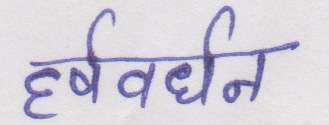 हर्षवर्धन